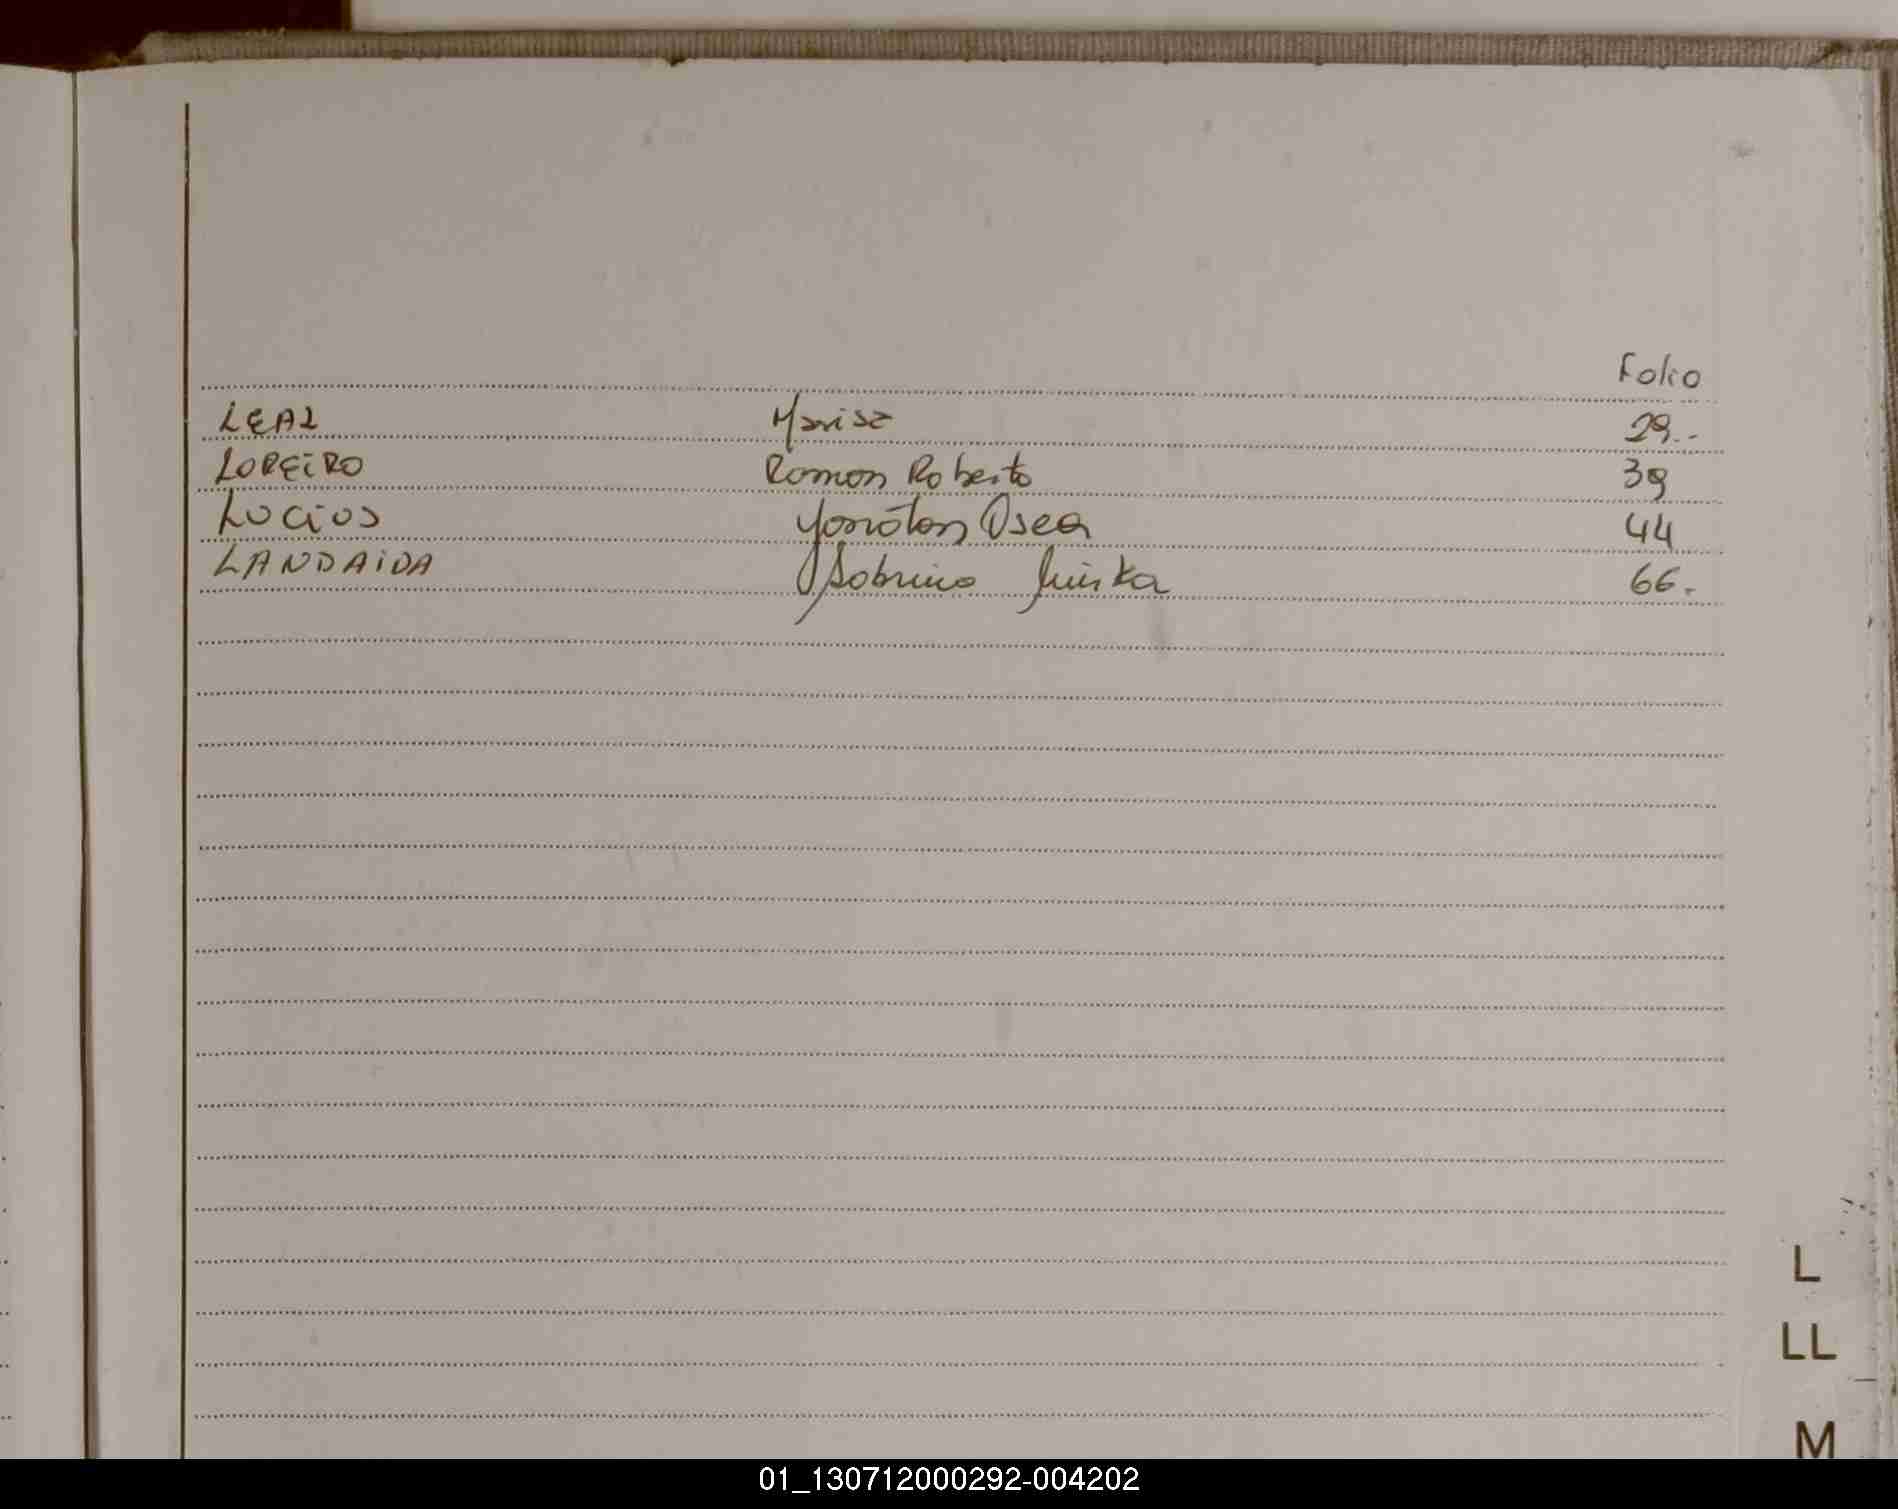 Folio
LEAL Marisa 29..
LOREiRO Ramon Roberto 39
LUCiOS Yonotan Osea 44
LANDAiDA Sobrino 66.
L
LL
M
01_130712000292-004202